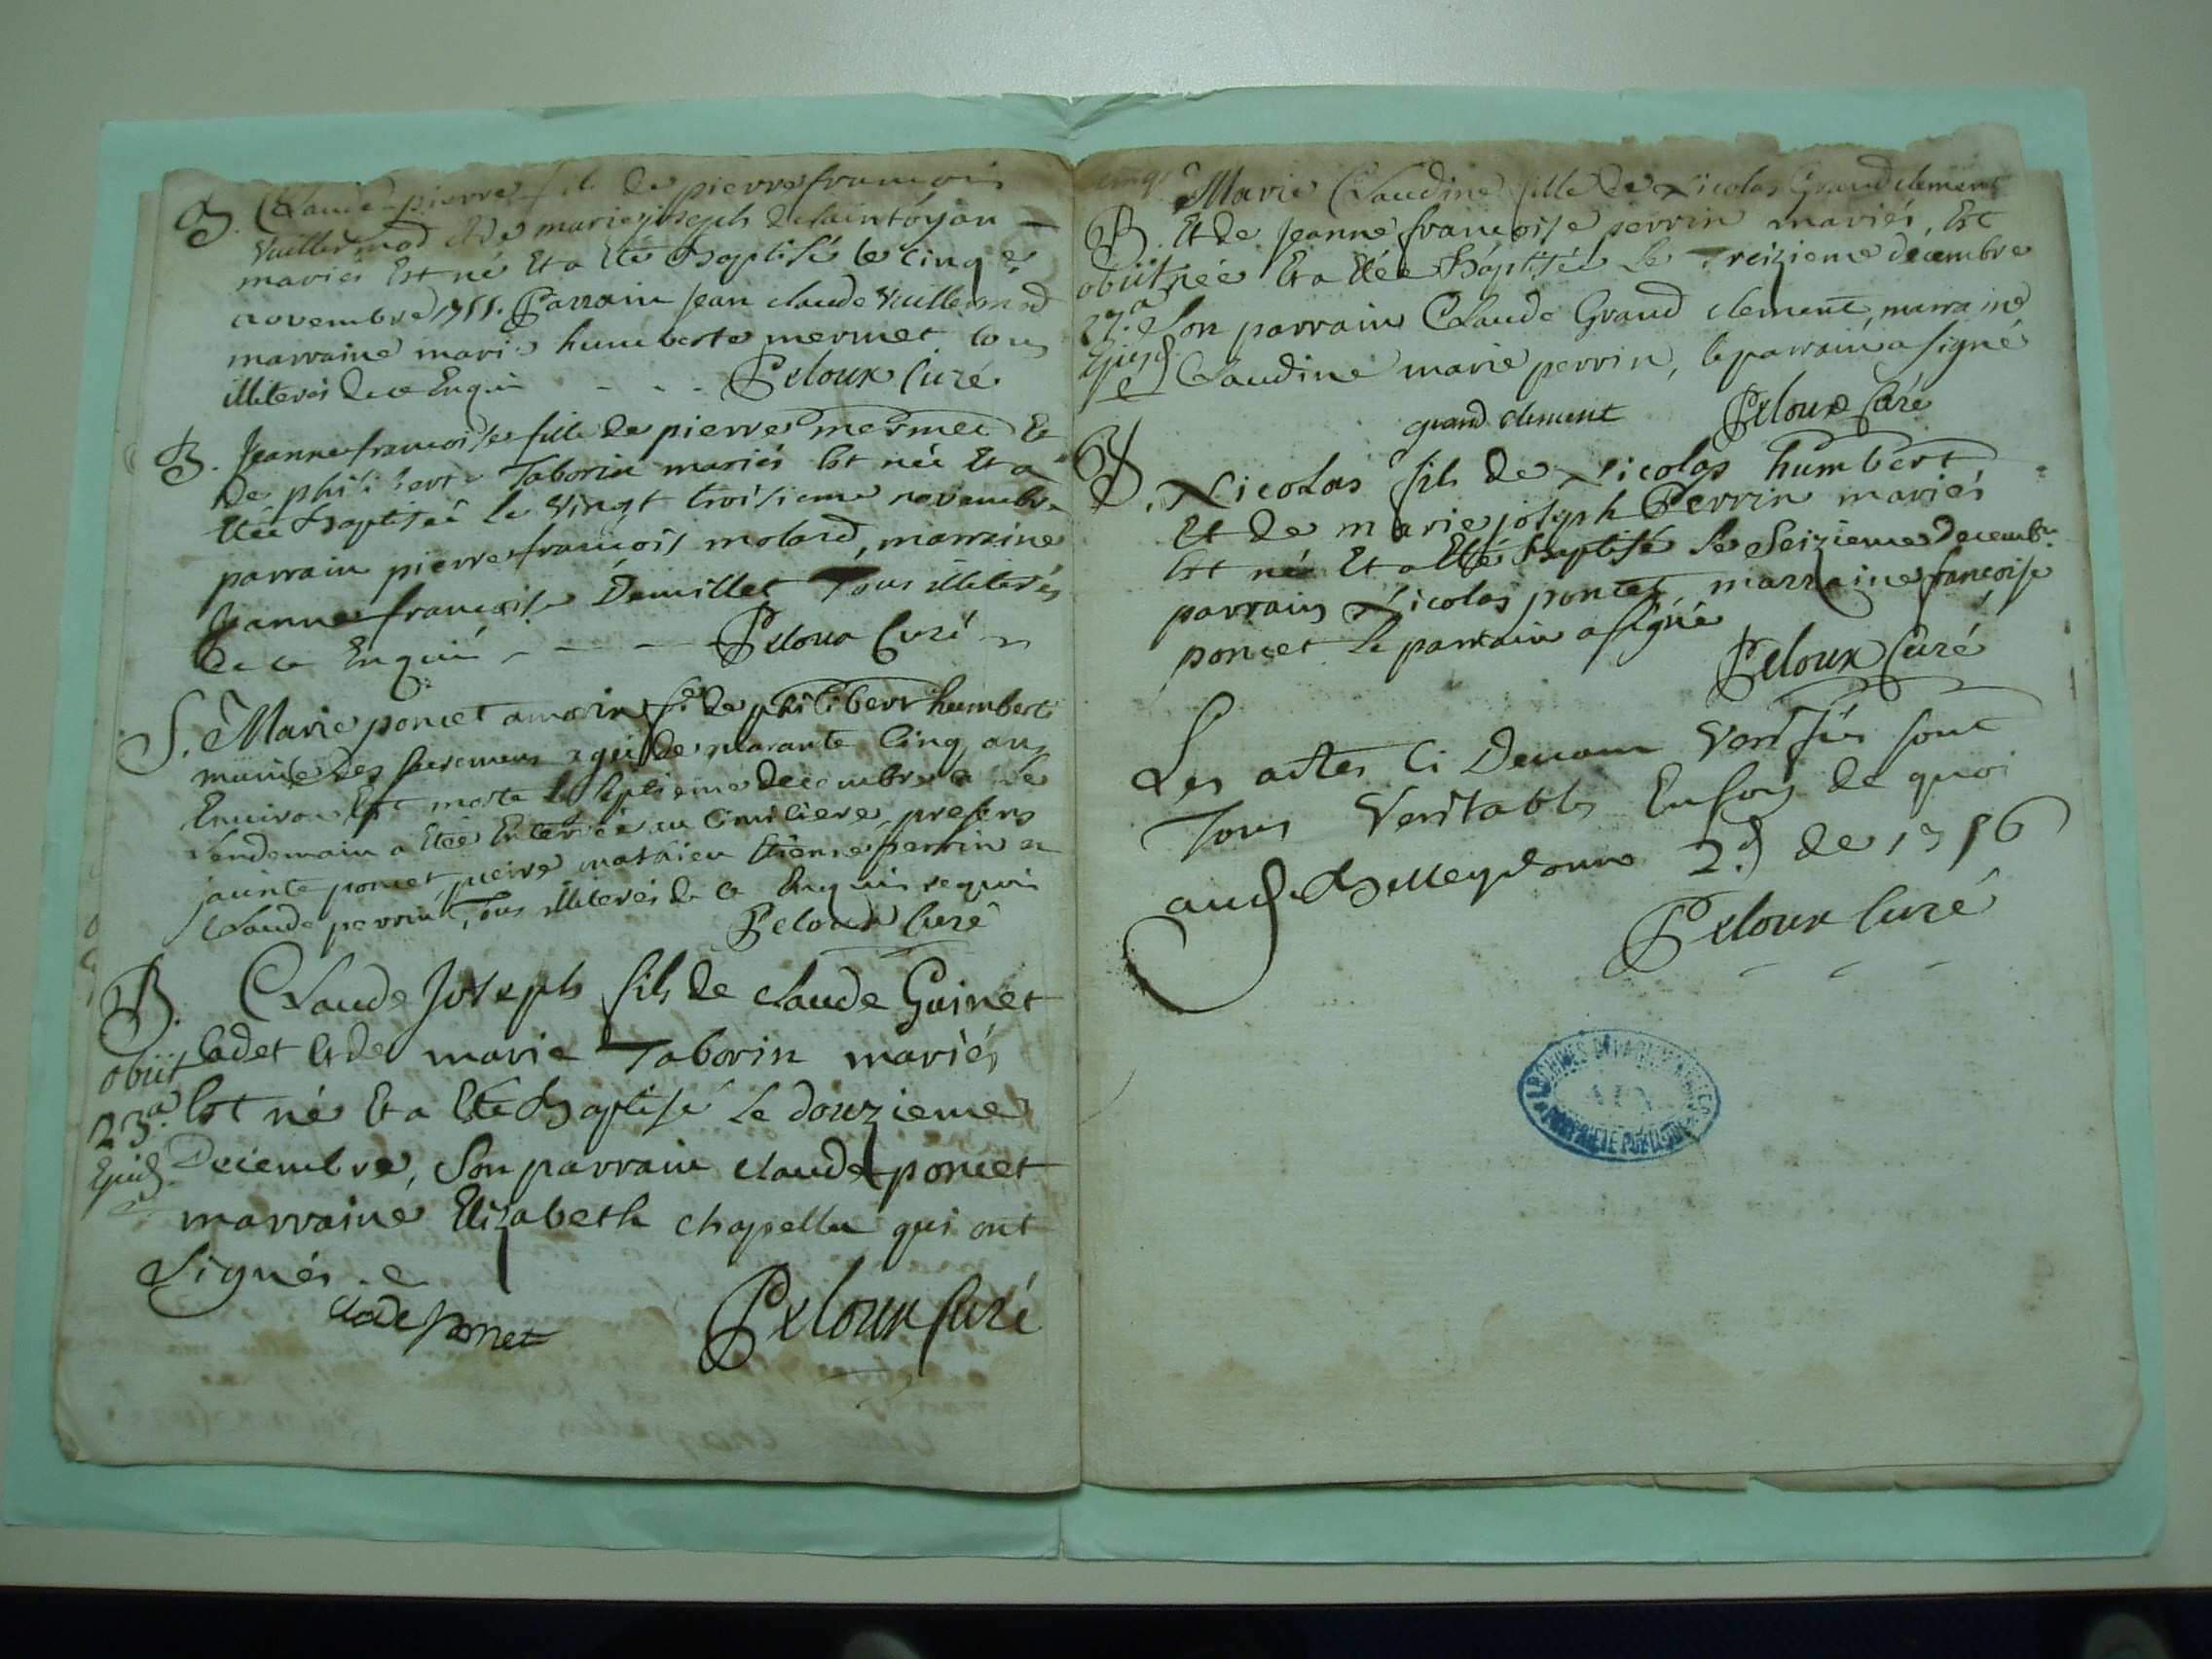 B. Claude pierre fils de pierre francois
Vuillermod et de marie joseph de saint oyan
mariés Est né Et a Eté Baptisé le cinq e
novembre 1755. Parrain jean claude Vuillermod
marraine marie humberte mermet tous
illiterés de ce Enquis - - - Peloux Curé
B. Jeanne francoise fille de pierre mermet Et
De philiberte Taborin mariés Est née Et a
Etée Baptisée le Vingt troisieme novembre
parrain pierre francois molard, marraine
jeanne francoise Tous illiterés
De ce Enquis - - - Peloux Curé
S. Marie poncet de philibert humbert
munie des sacremens agée de quarante Cinq ans
Environ Est morte le septieme decembre a Le
lendemain a Etée Enterrée au Cimitiere, presens
poncet, pierre mathieu Etienne perrin et
Claude perrin, Tous illiterés de ce Enquis requis
Peloux Curé
B. Claude Joseph fils de claude Guinet
obiit Cadet et de marie Taborin mariés
23.a Est né Et a Eté Baptisé Le douzieme
Ejusd. Decembre, Son parrain claude poncet
marraine Elizabeth chapellu qui ont
Signés
clade ponet Peloux Curé
Marie Claudine fille de Nicolas Grand clement
B. Et de Jeanne francoise perrin mariés, Est
obiit née Et a Etée Baptisée Le Treizieme decembre
27.a Son parrain Claude Grand clement, marraine
Ejusd Claudine marie perrin, le parrain a signé
grand clement Peloux Curé
B. Nicolas fils de Nicolas humbert,
Et de marie joseph Perrin mariés
Est né Et a Eté Baptisé le Seizieme Decembr.
parrain Nicolas poncet, marraine francoise
poncet le parrain a signé
Peloux Curé
Les actes Ci Devant sont
Tous Veritables En foy de quoi
aud. Belleydoux 2.d de 1756
Peloux Curé
ARCHIVES DEPARTEMENTALES
AIN
PROPRIETE PUBLIQUE